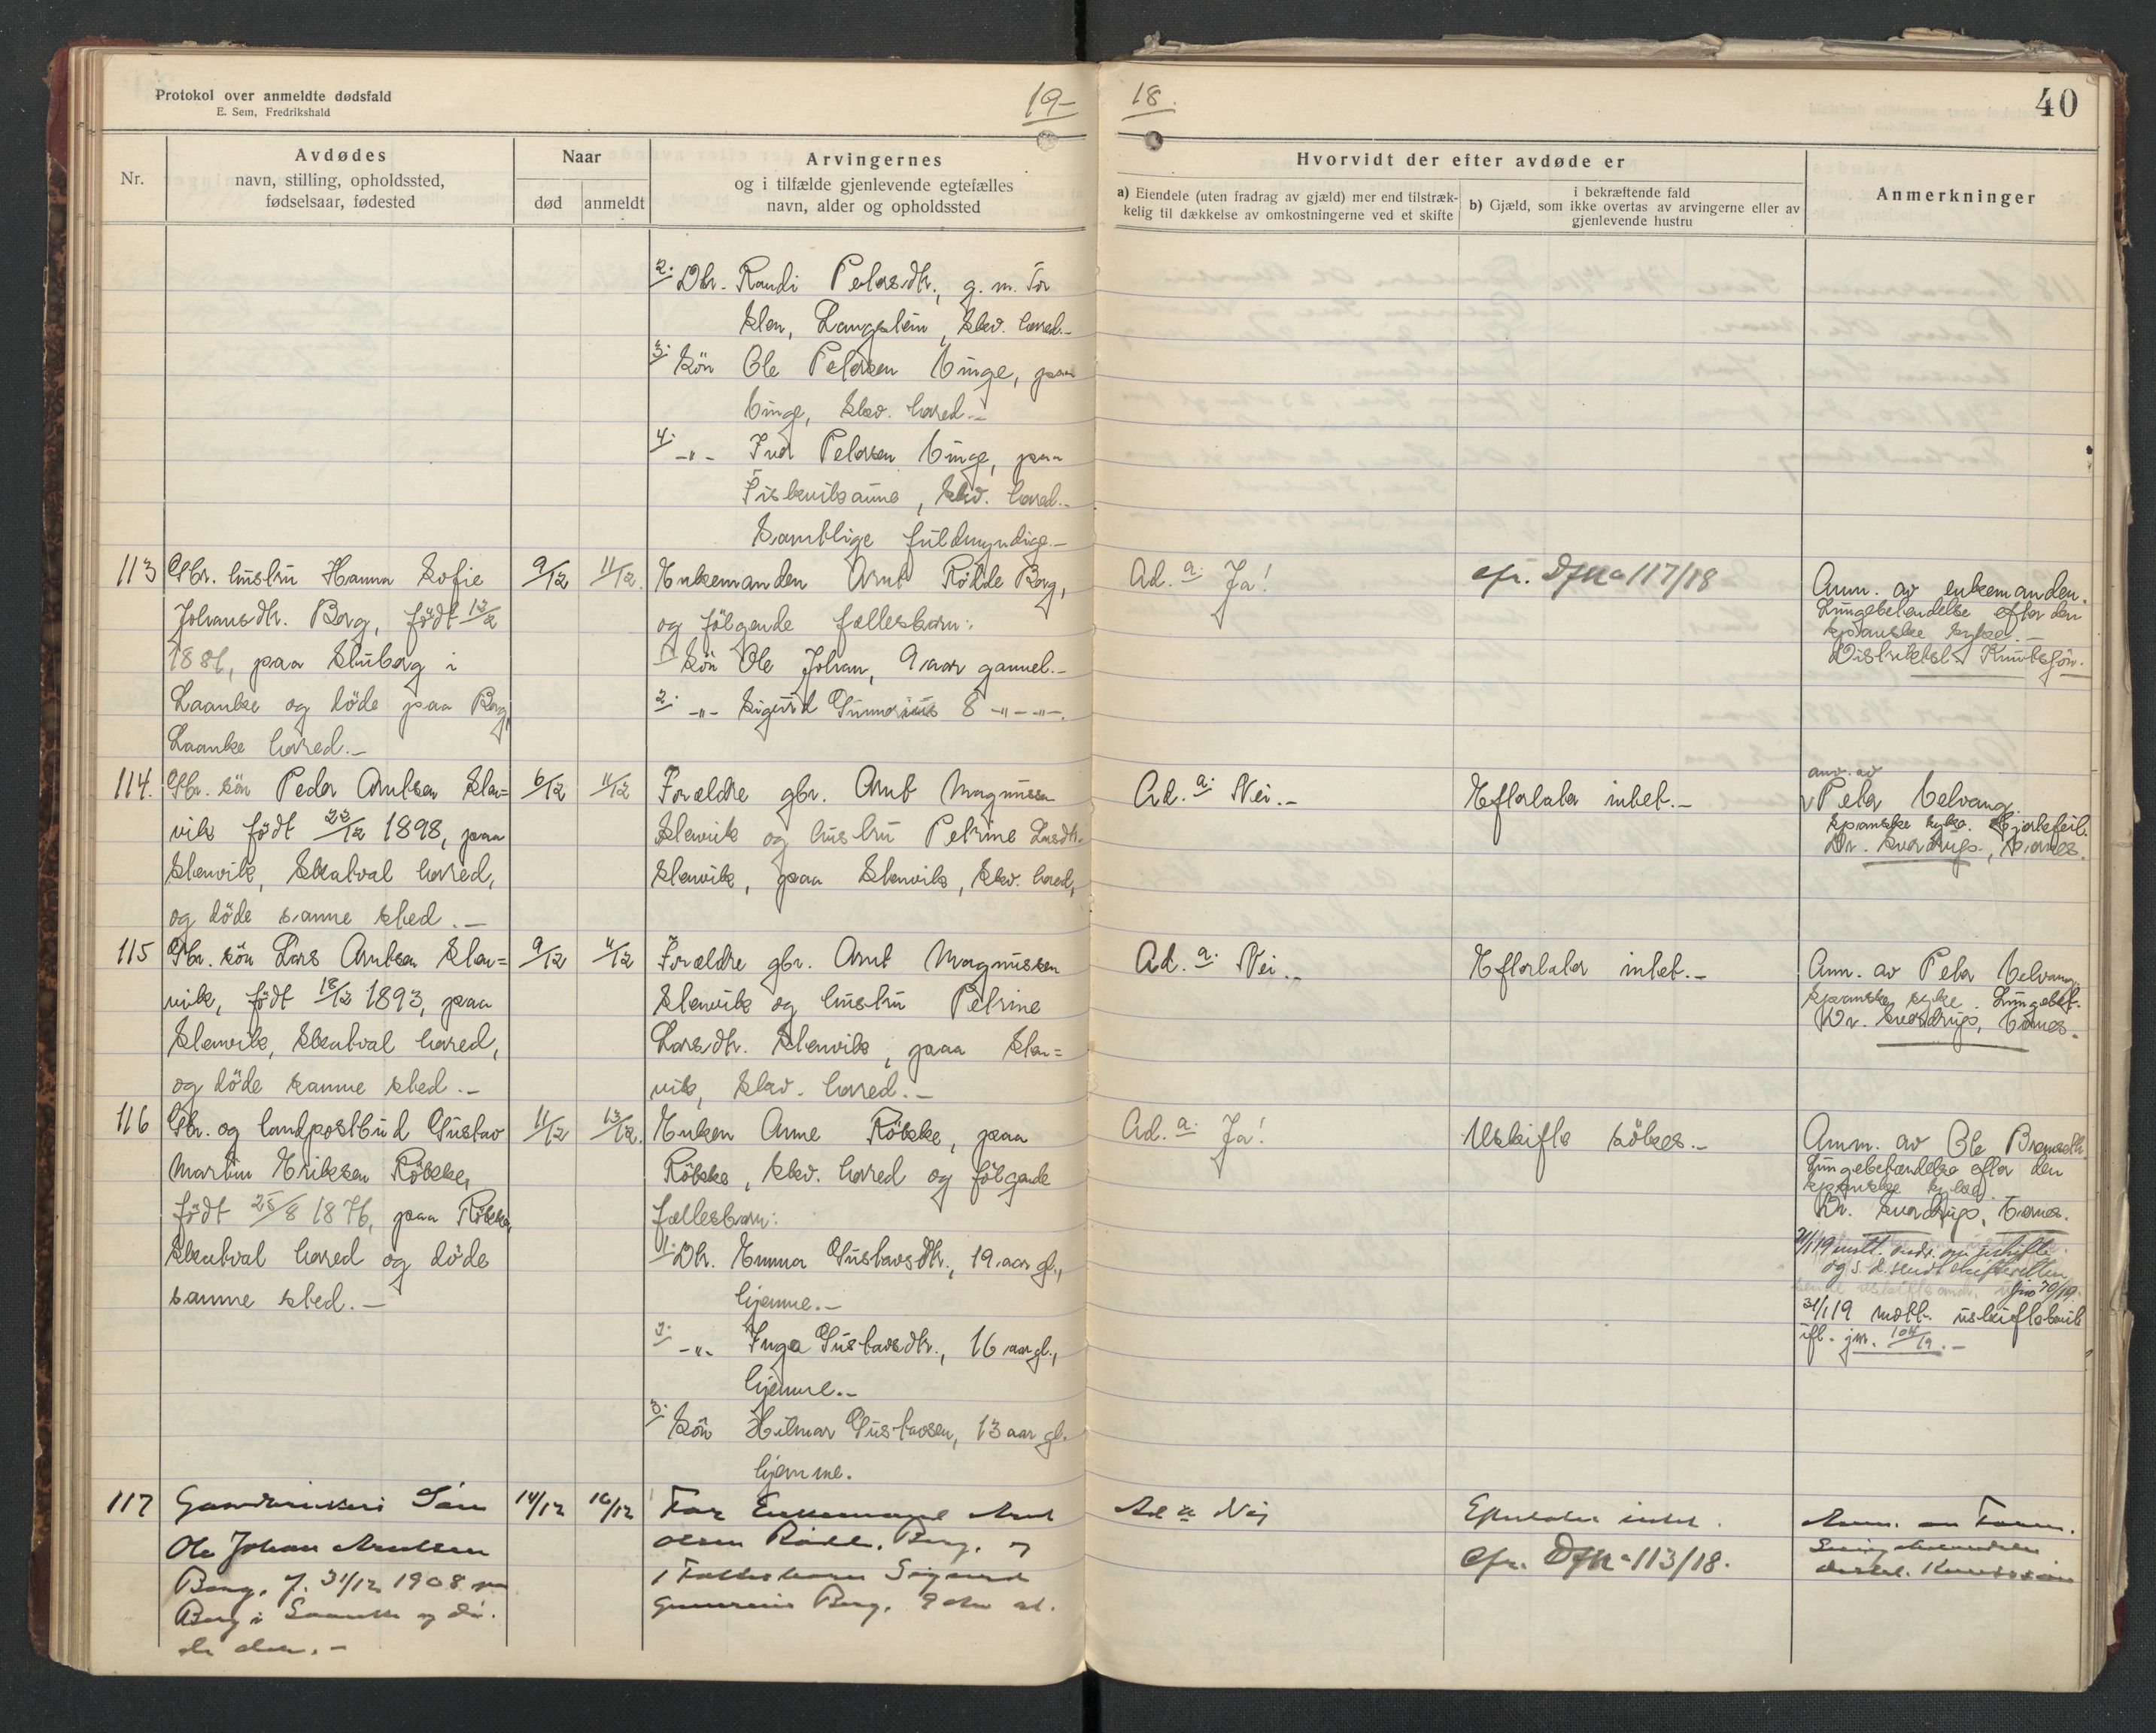 Protokol over anmeldte dødsfald
E. Sem, Fredrikshald
19-
18.
40
Nr.
Avdødes
navn, stilling, opholdssted,
fødselsaar, fødested
Naar
død
anmeldt
Arvingernes
og i tilfælde gjenlevende egtefælles
navn, alder og opholdssted
Hvorvidt der efter avdøde er
a) Eiendele (uten fradrag av gjæld) mer end tilstræk-
kelig til dækkelse av omkostningerne ved et skifte
i bekræftende fald
b) Gjæld, som ikke overtas av arvingerne eller av
gjenlevende hustru
Anmerkninger
2. Dtr. Randi Petersdtr., g. m. Tor
Sten, Langstein, Skv. hered.-
3. Sön Ole Petersen Vinge, paa
Vinge, Skv. hered.-
4. -"- Iver Petersen Vinge, paa
Fiskvikaune, Skv. hered.-
Samtlige fuldmyndige.-
113
Gbr. hustru Hanna Sofie
Johansdtr. Berg, födt 13/2
1881, paa Stuberg i
Laanke og döde paa Berg,
Laanke hered.-
9/12
11/12.
Enkemanden Arnt Rölde Berg,
og fölgende fællesbarn:
1. Sön Ole Johan, 9 aar gammel.-
2. -"- Sigurd Gunnerius 8 -"- -"-.
Ad. a. Ja!
cfr. Dfn 117/18
Anm. av enkemanden.
Lungebetendelse efter den
spanske syke.-
Distriktsl. Knutsön.
114.
Gbr. sön Peder Arntsen Sten=
vik födt 22/12 1898, paa
Stenvik, Skatval hered,
og döde samme sted.-
6/12
11/12
Forældre gbr. Arnt Magnussen
Stenvik og hustru Petrine Larsdtr.
Stenvik, paa Stenvik, Skv. hered,
Ad. a. Nei.-
Efterlater intet.-
anv. av
Peter Velvang.
Spanske syke. Hjertefeil.
Dr. Sverdrup, Værnes.
115
Gbr. sön Lars Arntsen Sten=
vik, födt 18/12 1893, paa
Stenvik, Skatval hered,
og döde samme sted.-
9/12
11/12
Forældre gbr. Arnt Magnussen
Stenvik og hustru Petrine
Larsdtr. Stenvik, paa Sten=
vik, Skv. hered.-
Ad. a. Nei.-
Efterlater intet.-
Anm. av Peter Velvang,
Spanske syke. Lungebet.
Dr. Sverdrup, Værnes.
116
Gbr. og landpostbud Gustav
Martin Eriksen Rökke,
födt 25/8 1876, paa Rökke,
Skatval hered og döde
samme sted.-
11/12
13/12.
Enken Anne Rökke, paa
Rökke, Skv. hered og fölgende
fællesbarn:
1. Dtr. Emma Gustavsdtr., 19 aar gl.,
hjemme.-
2. -"- Inga Gustavsdtr., 16 aar gl.,
hjemme.-
3. Sön Hilmar Gustavsen, 13 aar gl.
hjemme.
Ad. a. Ja!
Uskifte sökes.-
Anm. av Ole Bremseth.
Lungebetændelse efter den
spanske syke.
Dr. Sverdrup, Værnes.
og s. d. sendt skifteretten
31/1 19 mott. uskiftebevil
ifl. jnr. 104/19.-
117
Gaardbrukers Sön
Ole Johan Arntsen
Berg, f. 31/12 1908 paa
Berg i Laanke og dö-
de der.-
14/12
16/12
Far Enkemand Arnt
Olsen Rölde, Berg, og
1 Fællesbarn Sigurd
Gunnerius Berg, 9 aar gl.
Ad a Nej
Efterlater intet.
cfr. Dfn 113/18.
Anm. av Faren.
Lungebetendelse
distrl. Knutssön